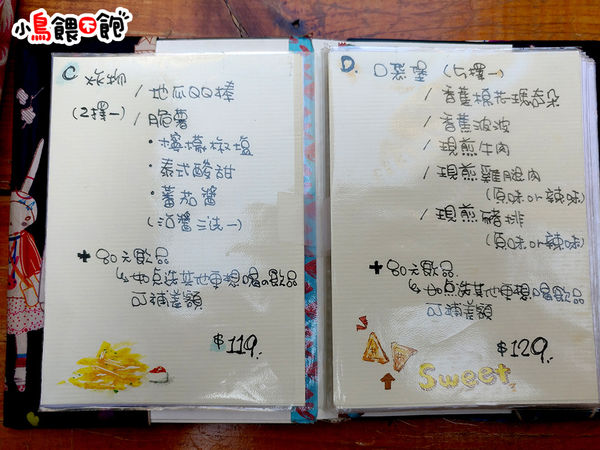 小鳥餵不飽
C 炸物
(2擇一)
/ 地瓜QQ棒
/ 脆薯
・檸檬椒塩
・泰式酸甜
・蕃茄醬
(沾醬三選一)
+ 80元飲品
↳如点选其他更想喝の飲品
可補差額
$119.
D. 口袋堡 (5擇一)
/ 香蕉棉花瑪奇朵
/ 香蕉波波
/ 現煎牛肉
/ 現煎雞腿肉
(原味or辣味)
/ 現煎豬排
(原味or辣味)
+ 80元飲品
↳如点选其他更想喝飲品
可補差額
$129.
Sweet